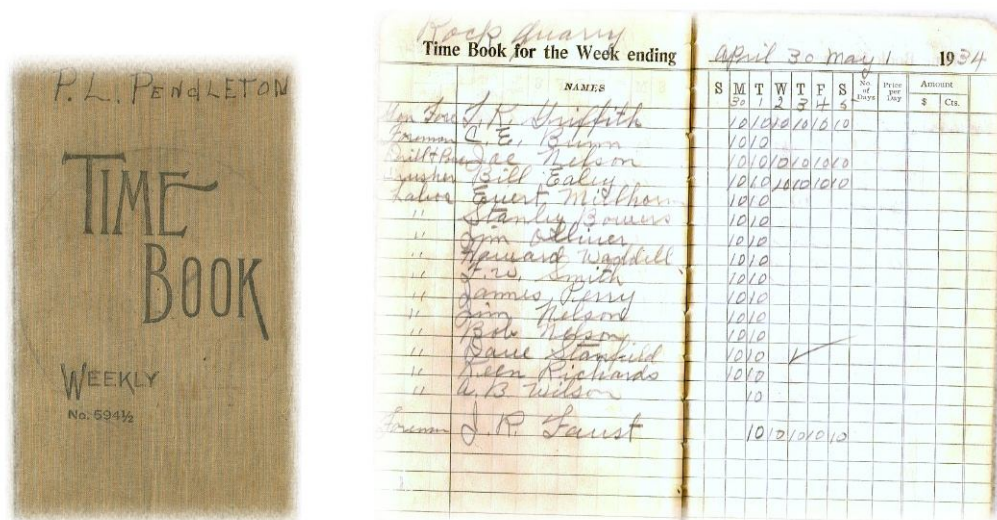 P. L. PENDLETON
TIME
BOOK
WEEKLY
No. 594½
Rock Quarry
Time Book for the Week ending April 30 May 1 1934
NAMES S M T W T F S No of Days Price per Day Amount
30 1 2 3 4 5 $ Cts.
Fore J. R. Griffith 10 10 10 10 10 10
Foreman C. E. Bunn 10 10
Joe Nelson 10 10 10 10 10 10
Crusher Bill Ealey 10 10 10 10 10 10
Labor Evert Milhorn 10 10
" Stanley Bowers 10 10
" Jim Olliver 10 10
" Howard Waddell 10 10
" Smith 10 10
" James Perry 10 10
" Jim Nelson 10 10
" Bob Nelson 10 10
" Dave Stanfield 10 10
" Keen Richards 10 10
" A. B. Wilson 10
Foreman J. R. Faust 10 10 10 10 10